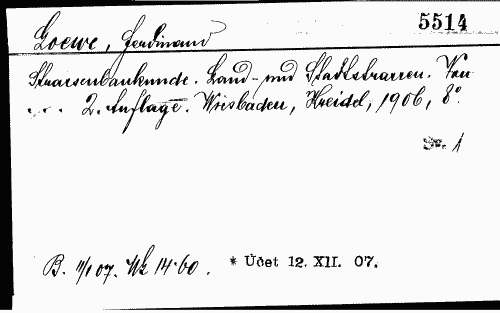 5514
Loewe, Ferdinand
Strassenbaukunde. Land- und Stadtstrassen. Von
. . . 2. Auflage. Wiesbaden, Kreidel, 1906, 8°.
B. 11/1 07. Mk 14·60. * Účet 12. XII. 07.